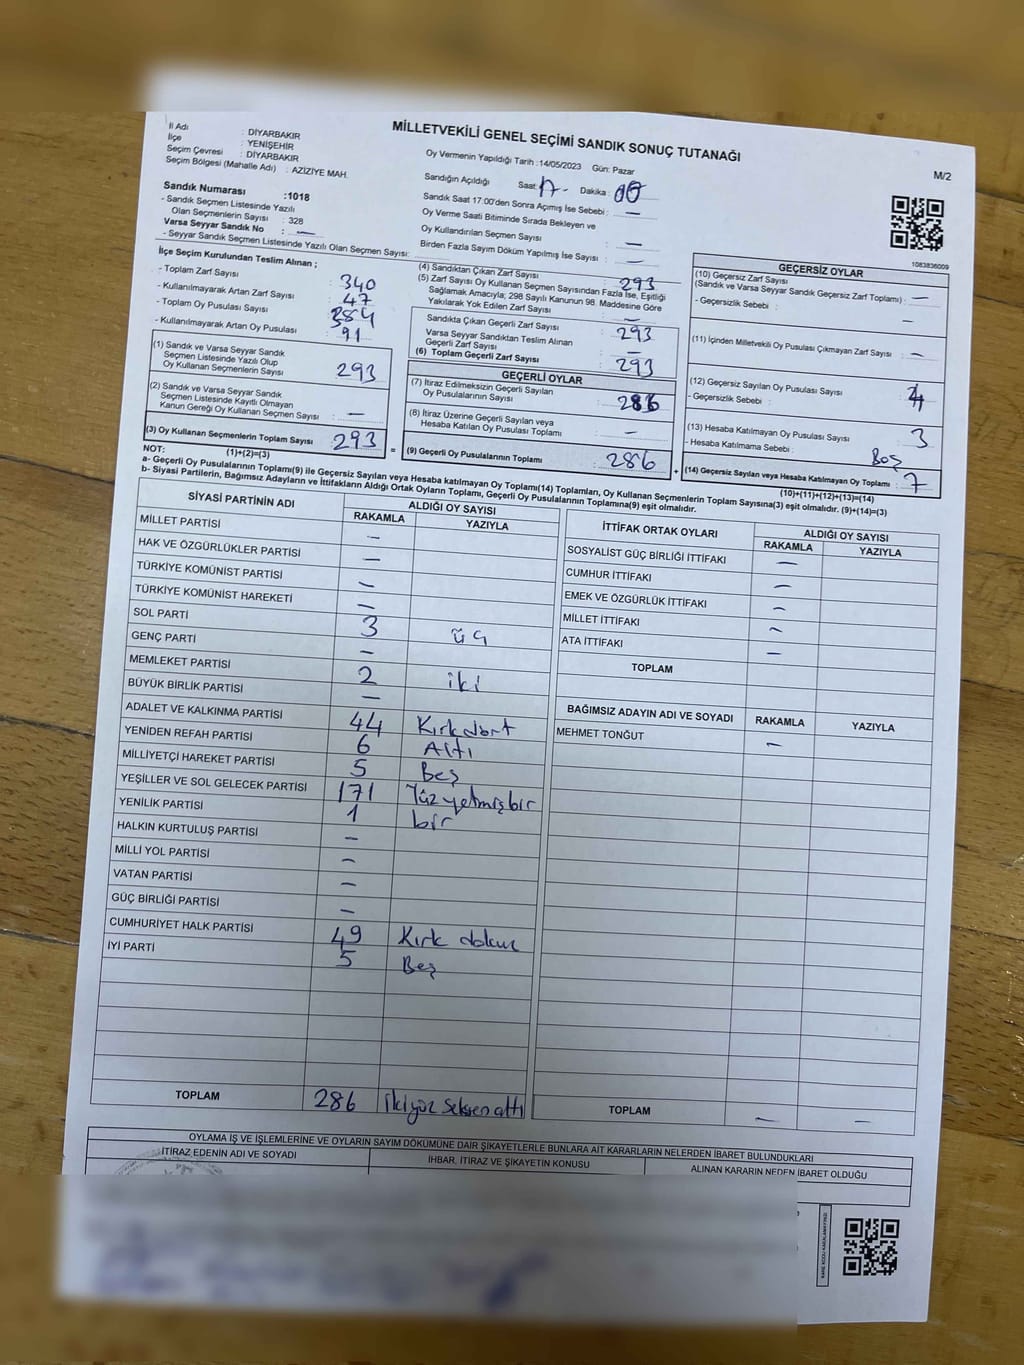 MİLLETVEKİLİ GENEL SEÇİMİ SANDIK SONUÇ TUTANAĞI
M/2
İl Adı : DİYARBAKIR
İlçe : YENİŞEHİR
Seçim Çevresi : DİYARBAKIR
Seçim Bölgesi (Mahalle Adı) : AZİZİYE MAH.
Sandık Numarası :1018
- Sandık Seçmen Listesinde Yazılı
Olan Seçmenlerin Sayısı : 328
Varsa Seyyar Sandık No : —
- Seyyar Sandık Seçmen Listesinde Yazılı Olan Seçmen Sayısı:
Oy Vermenin Yapıldığı Tarih :14/05/2023 Gün: Pazar
Sandığın Açıldığı Saat: 17- Dakika: 00
Sandık Saat 17.00'den Sonra Açımış İse Sebebi : —
Oy Verme Saati Bitiminde Sırada Bekleyen ve
Oy Kullandırılan Seçmen Sayısı : —
Birden Fazla Sayım Döküm Yapılmış İse Sayısı : —
1083836009
İlçe Seçim Kurulundan Teslim Alınan ;
- Toplam Zarf Sayısı : 340
- Kullanılmayarak Artan Zarf Sayısı : 47
- Toplam Oy Pusulası Sayısı : 384
- Kullanılmayarak Artan Oy Pusulası : 91
(1) Sandık ve Varsa Seyyar Sandık
Seçmen Listesinde Yazılı Olup
Oy Kullanan Seçmenlerin Sayısı : 293
(2) Sandık ve Varsa Seyyar Sandık
Seçmen Listesinde Kayıtlı Olmayan
Kanun Gereği Oy Kullanan Seçmen Sayısı : —
(3) Oy Kullanan Seçmenlerin Toplam Sayısı : 293
(1)+(2)=(3)
(4) Sandıktan Çıkan Zarf Sayısı : 293
(5) Zarf Sayısı Oy Kullanan Seçmen Sayısından Fazla İse, Eşitliği
Sağlamak Amacıyla; 298 Sayılı Kanunun 98. Maddesine Göre
Yakılarak Yok Edilen Zarf Sayısı : —
Sandıkta Çıkan Geçerli Zarf Sayısı : 293
Varsa Seyyar Sandıktan Teslim Alınan
Geçerli Zarf Sayısı : —
(6) Toplam Geçerli Zarf Sayısı : 293
GEÇERLİ OYLAR
(7) İtiraz Edilmeksizin Geçerli Sayılan
Oy Pusulalarının Sayısı : 286
(8) İtiraz Üzerine Geçerli Sayılan veya
Hesaba Katılan Oy Pusulası Toplamı : —
= (9) Geçerli Oy Pusulalarının Toplamı : 286 +
GEÇERSİZ OYLAR
(10) Geçersiz Zarf Sayısı
(Sandık ve Varsa Seyyar Sandık Geçersiz Zarf Toplamı) : —
- Geçersizlik Sebebi : —
(11) İçinden Milletvekili Oy Pusulası Çıkmayan Zarf Sayısı : —
(12) Geçersiz Sayılan Oy Pusulası Sayısı : 4
- Geçersizlik Sebebi :
(13) Hesaba Katılmayan Oy Pusulası Sayısı : 3
- Hesaba Katılmama Sebebi : Boş
(14) Geçersiz Sayılan veya Hesaba Katılmayan Oy Toplamı : 7
(10)+(11)+(12)+(13)=(14)
NOT:
a- Geçerli Oy Pusulalarının Toplamı(9) ile Geçersiz Sayılan veya Hesaba Katılmayan Oy Toplamı(14) Toplamları, Oy Kullanan Seçmenlerin Toplam Sayısına(3) eşit olmalıdır. (9)+(14)=(3)
b- Siyasi Partilerin, Bağımsız Adayların ve İttifakların Aldığı Ortak Oyların Toplamı, Geçerli Oy Pusulalarının Toplamına(9) eşit olmalıdır.
SİYASİ PARTİNİN ADI ALDIĞI OY SAYISI
RAKAMLA YAZIYLA
MİLLET PARTİSİ —
HAK VE ÖZGÜRLÜKLER PARTİSİ —
TÜRKİYE KOMÜNİST PARTİSİ —
TÜRKİYE KOMÜNİST HAREKETİ —
SOL PARTİ 3 üç
GENÇ PARTİ —
MEMLEKET PARTİSİ 2 iki
BÜYÜK BİRLİK PARTİSİ —
ADALET VE KALKINMA PARTİSİ 44 Kırkdört
YENİDEN REFAH PARTİSİ 6 Altı
MİLLİYETÇİ HAREKET PARTİSİ 5 Beş
YEŞİLLER VE SOL GELECEK PARTİSİ 171 Yüzyetmişbir
YENİLİK PARTİSİ 1 bir
HALKIN KURTULUŞ PARTİSİ —
MİLLİ YOL PARTİSİ —
VATAN PARTİSİ —
GÜÇ BİRLİĞİ PARTİSİ —
CUMHURİYET HALK PARTİSİ 49 Kırk dokuz
İYİ PARTİ 5 Beş
TOPLAM 286 ikiyüz seksen altı
İTTİFAK ORTAK OYLARI ALDIĞI OY SAYISI
RAKAMLA YAZIYLA
SOSYALİST GÜÇ BİRLİĞİ İTTİFAKI —
CUMHUR İTTİFAKI —
EMEK VE ÖZGÜRLÜK İTTİFAKI —
MİLLET İTTİFAKI —
ATA İTTİFAKI —
TOPLAM
BAĞIMSIZ ADAYIN ADI VE SOYADI RAKAMLA YAZIYLA
MEHMET TONĞUT —
TOPLAM — —
OYLAMA İŞ VE İŞLEMLERİNE VE OYLARIN SAYIM DÖKÜMÜNE DAİR ŞİKAYETLERLE BUNLARA AİT KARARLARIN NELERDEN İBARET BULUNDUKLARI
İTİRAZ EDENİN ADI VE SOYADI İHBAR, İTİRAZ VE ŞİKAYETİN KONUSU ALINAN KARARIN NEDEN İBARET OLDUĞU